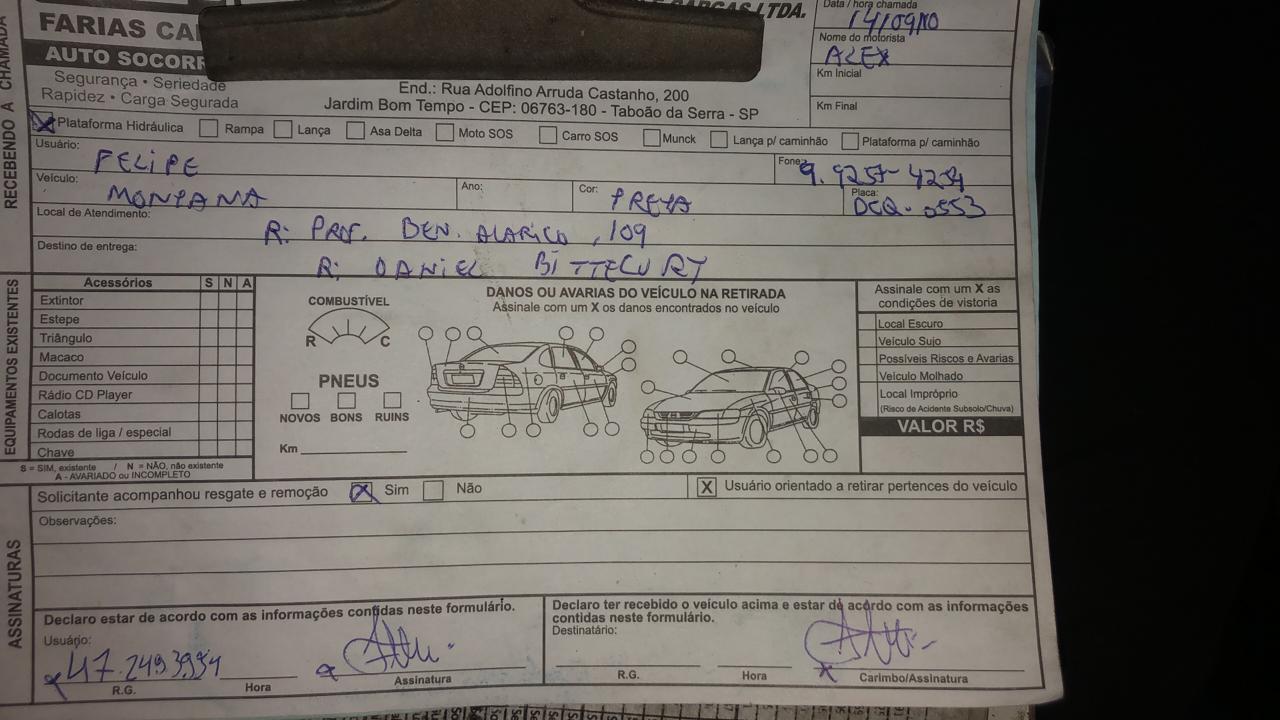 LTDA.
FARIAS
AUTO SOCORR
Segurança • Seriedade
Rapidez • Carga Segurada
End.: Rua Adolfino Arruda Castanho, 200
Jardim Bom Tempo - CEP: 06763-180 - Taboão da Serra - SP
Data / hora chamada
Nome do motorista
ALEX
Km Inicial
Km Final
RECEBENDO A CHAMADA
Plataforma Hidráulica Rampa Lança Asa Delta Moto SOS Carro SOS Munck Lança p/ caminhão Plataforma p/ caminhão
Usuário: FELIPE Fone:
Veículo: MONTANA Ano: Cor: PRETA Placa: DCQ-0553
Local de Atendimento: R: PROF. BEN. ALARICO, 109
Destino de entrega: R: DANIEL BITTECURT
EQUIPAMENTOS EXISTENTES
Acessórios S N A
Extintor
Estepe
Triângulo
Macaco
Documento Veículo
Rádio CD Player
Calotas
Rodas de liga / especial
Chave
S = SIM, existente / N = NÃO, não existente
A - AVARIADO ou INCOMPLETO
COMBUSTÍVEL
R C
PNEUS
NOVOS BONS RUINS
Km
DANOS OU AVARIAS DO VEÍCULO NA RETIRADA
Assinale com um X os danos encontrados no veículo
Assinale com um X as
condições de vistoria
Local Escuro
Veículo Sujo
Possíveis Riscos e Avarias
Veículo Molhado
Local Impróprio
(Risco de Acidente Subsolo/Chuva)
VALOR R$
Solicitante acompanhou resgate e remoção X Sim Não X Usuário orientado a retirar pertences do veículo
ASSINATURAS
Observações:
Declaro estar de acordo com as informações contidas neste formulário.
Usuário:
R.G. Hora Assinatura
Declaro ter recebido o veículo acima e estar de acordo com as informações
contidas neste formulário.
Destinatário:
R.G. Hora Carimbo/Assinatura